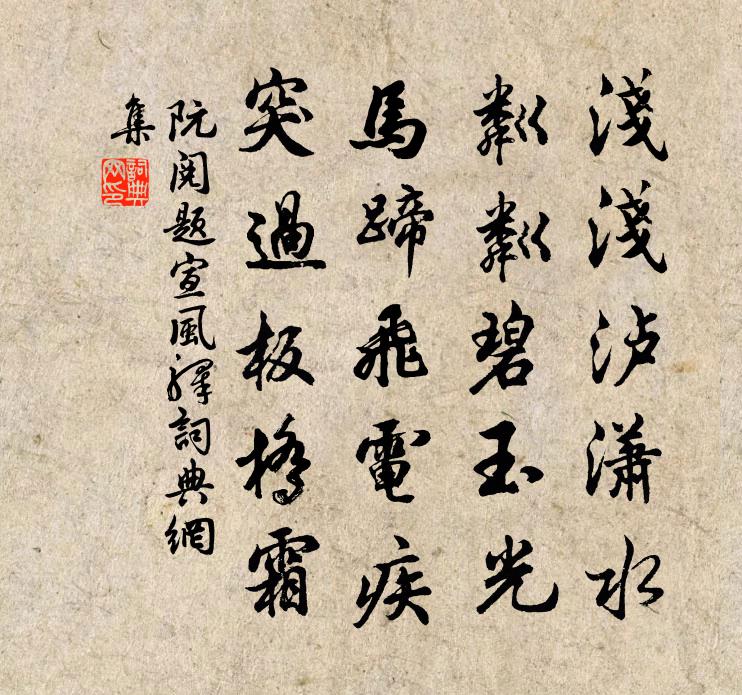 淺淺泸瀟水
粼粼碧玉光
馬蹄飛電疾
突過板橋霜
阮閱題宣風驛詞典網
集
詞典網印